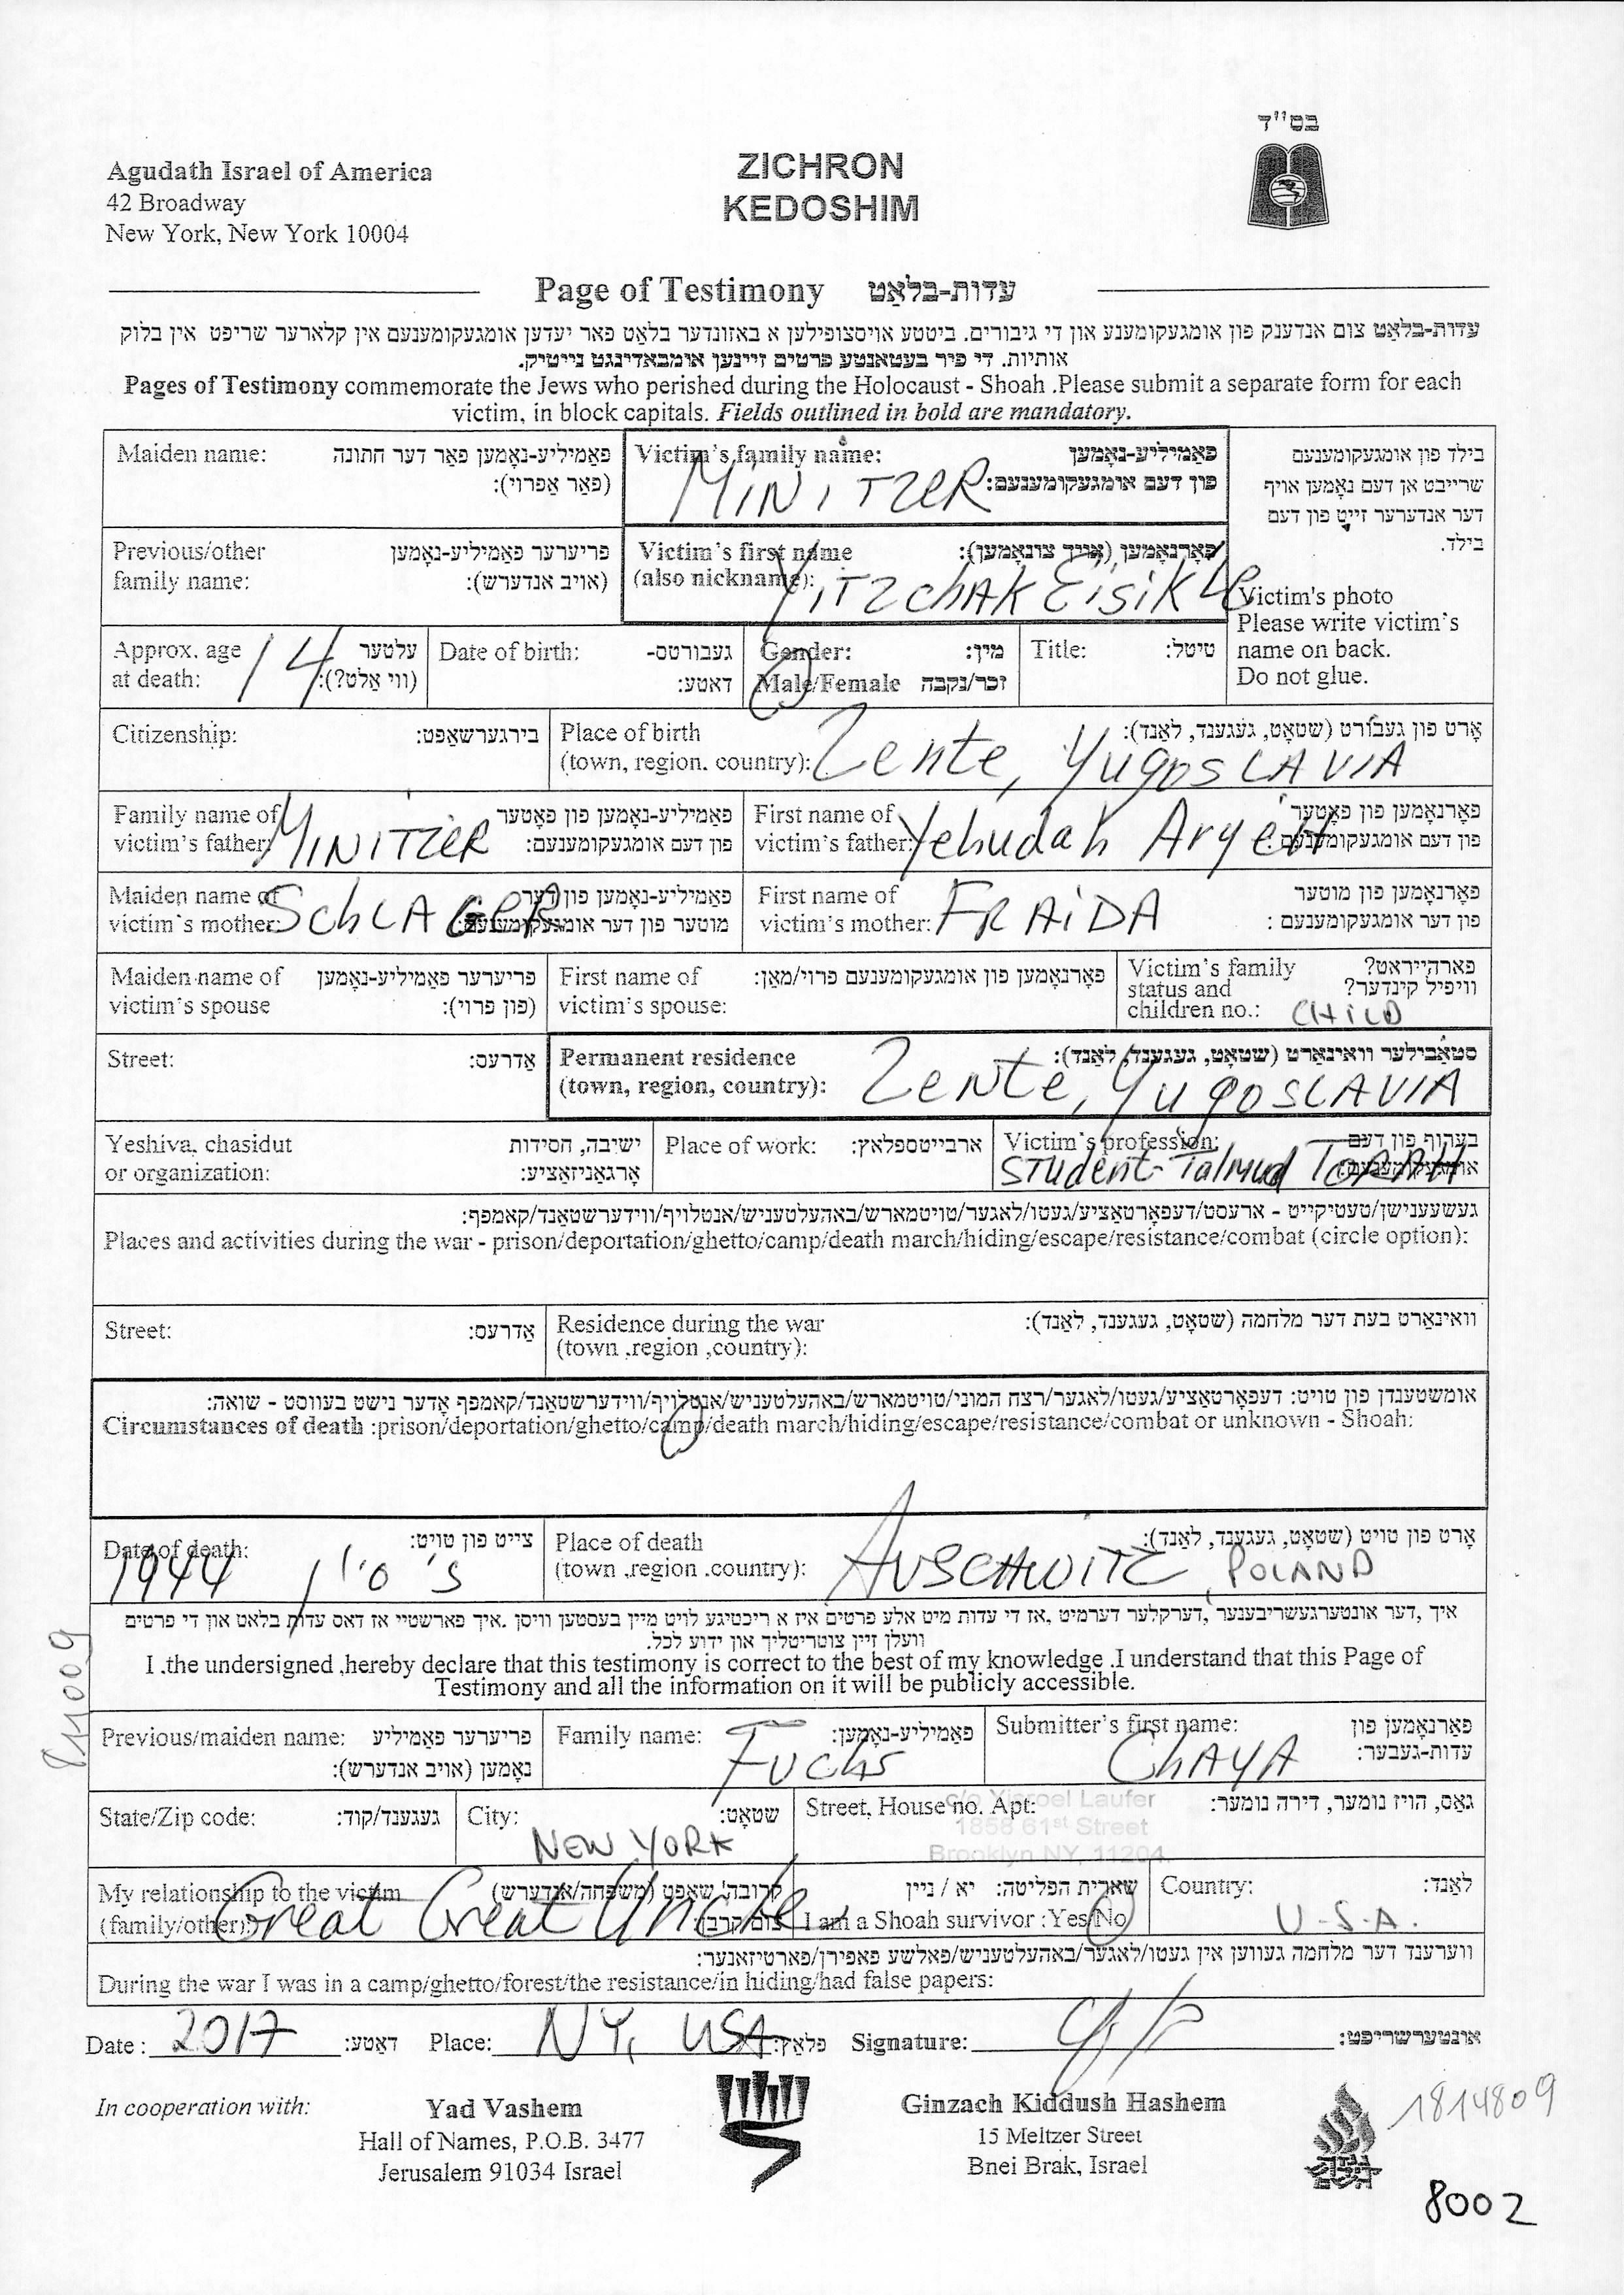 בס"ד
Agudath Israel of America
42 Broadway
New York, New York 10004
ZICHRON
KEDOSHIM
Page of Testimony עדות-בלאַט
עדות-בלאַט צום אנדענק פון אומגעקומענע און די גיבורים. ביטטע אויסצופילען א באזונדער בלאט פאר יעדען אומגעקומענעם אין קלארער שריפט אין בלוק
אותיות. די פיר בעטאנטע פרטים זיינען אומבאדינגט נייטיק.
Pages of Testimony commemorate the Jews who perished during the Holocaust - Shoah .Please submit a separate form for each
victim, in block capitals. Fields outlined in bold are mandatory.
Maiden name: פאַמיליע-נאָמען פאַר דער חתונה
(פאַר אַפרוי):
Victim's family name: פאַמיליע-נאָמען
פון דעם אומגעקומענעם:
MINITZER
בילד פון אומגעקומענעם
שרייבט אן דעם נאָמען אויף
דער אנדערער זייט פון דעם
בילד.
Previous/other פריערער פאַמיליע-נאָמען
family name: (אויב אנדערש):
Victim's first name פאָרנאָמען (אויך צונאָמען):
(also nickname):
YITZCHAK EISIK
Victim's photo
Please write victim's
name on back.
Do not glue.
Approx. age עלטער
at death: (ווי אַלט?):
14
Date of birth: געבורטס-
דאטע:
Gender: מין:
Male/Female זכר/נקבה
Title: טיטל:
Citizenship: בירגערשאַפט:
Place of birth אָרט פון געבורט (שטאָט, געגענד, לאַנד):
(town, region. country): Zente, YugosLAVIA
Family name of פאַמיליע-נאָמען פון פאָטער
victim's father: פון דעם אומגעקומענעם:
MINITZER
First name of פאָרנאָמען פון פאָטער
victim's father: פון דעם אומגעקומענעם:
Yehudah AryeH
Maiden name of פאַמיליע-נאָמען פון דער
victim's mother: מוטער פון דער אומגעקומענעם:
SchLAGER
First name of פאָרנאָמען פון מוטער
victim's mother: פון דער אומגעקומענעם :
FRAiDA
Maiden name of פריערער פאַמיליע-נאָמען
victim's spouse (פון פרוי):
First name of פאָרנאָמען פון אומגעקומענעם פרוי/מאַן:
victim's spouse:
Victim's family פארהייראט?
status and וויפיל קינדער?
children no.: CHILD
Street: אַדרעס:
Permanent residence סטאַבילער וואוינאָרט (שטאָט, געגענד, לאַנד):
(town, region, country): Zente, YugoSLAVIA
Yeshiva, chasidut ישיבה, חסידות
or organization: אָרגאַניזאַציע:
Place of work: ארבייטספלאץ:
Victim's profession: בערוף פון דעם
Student-Talmud TORAH
געשעענישן/טעטיקייט - ארעסט/דעפאָרטאַציע/געטו/לאגער/טויטמארש/באהעלטעניש/אנטלויף/ווידערשטאַנד/קאמפף:
Places and activities during the war - prison/deportation/ghetto/camp/death march/hiding/escape/resistance/combat (circle option):
Street: אַדרעס:
Residence during the war וואוינאָרט בעת דער מלחמה (שטאָט, געגענד, לאַנד):
(town ,region ,country):
אומשטענדן פון טויט: דעפאָרטאַציע/געטו/לאגער/רצח המוני/טויטמארש/באהעלטעניש/אנטלויף/ווידערשטאַנד/קאמפף אָדער נישט בעווסט - שואה:
Circumstances of death :prison/deportation/ghetto/camp/death march/hiding/escape/resistance/combat or unknown - Shoah:
Date of death: צייט פון טויט:
1944
Place of death אָרט פון טויט (שטאָט, געגענד, לאַנד):
(town ,region .country): AUSCHWITZ, POLAND
איך ,דער אונטערגעשריבענער ,דערקלער דערמיט ,אז די עדות מיט אלע פרטים איז א ריכטיגע לויט מיין בעסטען וויסן .איך פארשטיי אז דאס עדות בלאט און די פרטים
וועלן זיין צוטריטליך און ידוע לכל.
I .the undersigned ,hereby declare that this testimony is correct to the best of my knowledge .I understand that this Page of
Testimony and all the information on it will be publicly accessible.
811009
Previous/maiden name: פריערער פאַמיליע
נאָמען (אויב אנדערש):
Family name: פאַמיליע-נאָמען:
Fuchs
Submitter's first name: פאָרנאָמען פון
עדות-געבער:
ChAYA
State/Zip code: געגענד/קוד:
City: שטאָט:
NEW YORK
Street, House no. Apt: גאַס, הויז נומער, דירה נומער:
c/o Yisroel Laufer
1858 61st Street
Brooklyn NY, 11204
My relationship to the victim קרובה'שאַפט (משפּחה/אנדערש)
(family/other): Great Great Uncle
שארית הפליטה: יא / ניין
I am a Shoah survivor :Yes/No
Country: לאַנד:
U.S.A.
ווערענד דער מלחמה געווען אין געטו/לאגער/באהעלטעניש/פאלשע פאפירן/פארטיזאנער:
During the war I was in a camp/ghetto/forest/the resistance/in hiding/had false papers:
Date : 2017 דאַטע: Place: NY, USA פלאַץ: Signature: אונטערשריפט:
In cooperation with:
Yad Vashem
Hall of Names, P.O.B. 3477
Jerusalem 91034 Israel
Ginzach Kiddush Hashem
15 Meltzer Street
Bnei Brak, Israel
1814809
8002